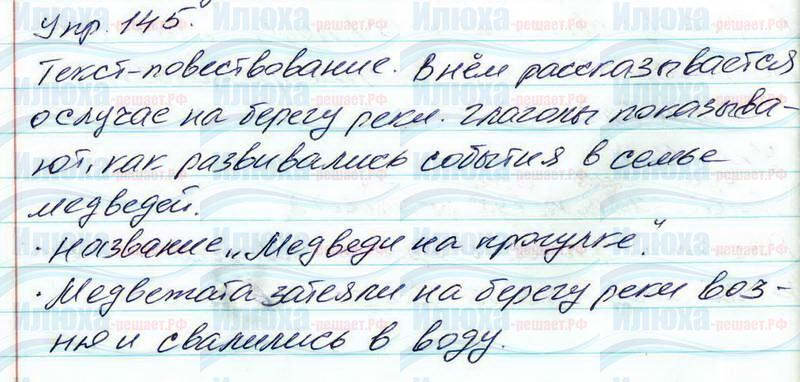 Упр. 145.
Текст-повествование. В нём рассказывается
о случае на берегу реки. Глаголы показыва-
ют, как развивались события в семье
медведей.
· Название „Медведи на прогулке".
· Медвежата затеяли на берегу реки воз-
ню и свалились в воду.